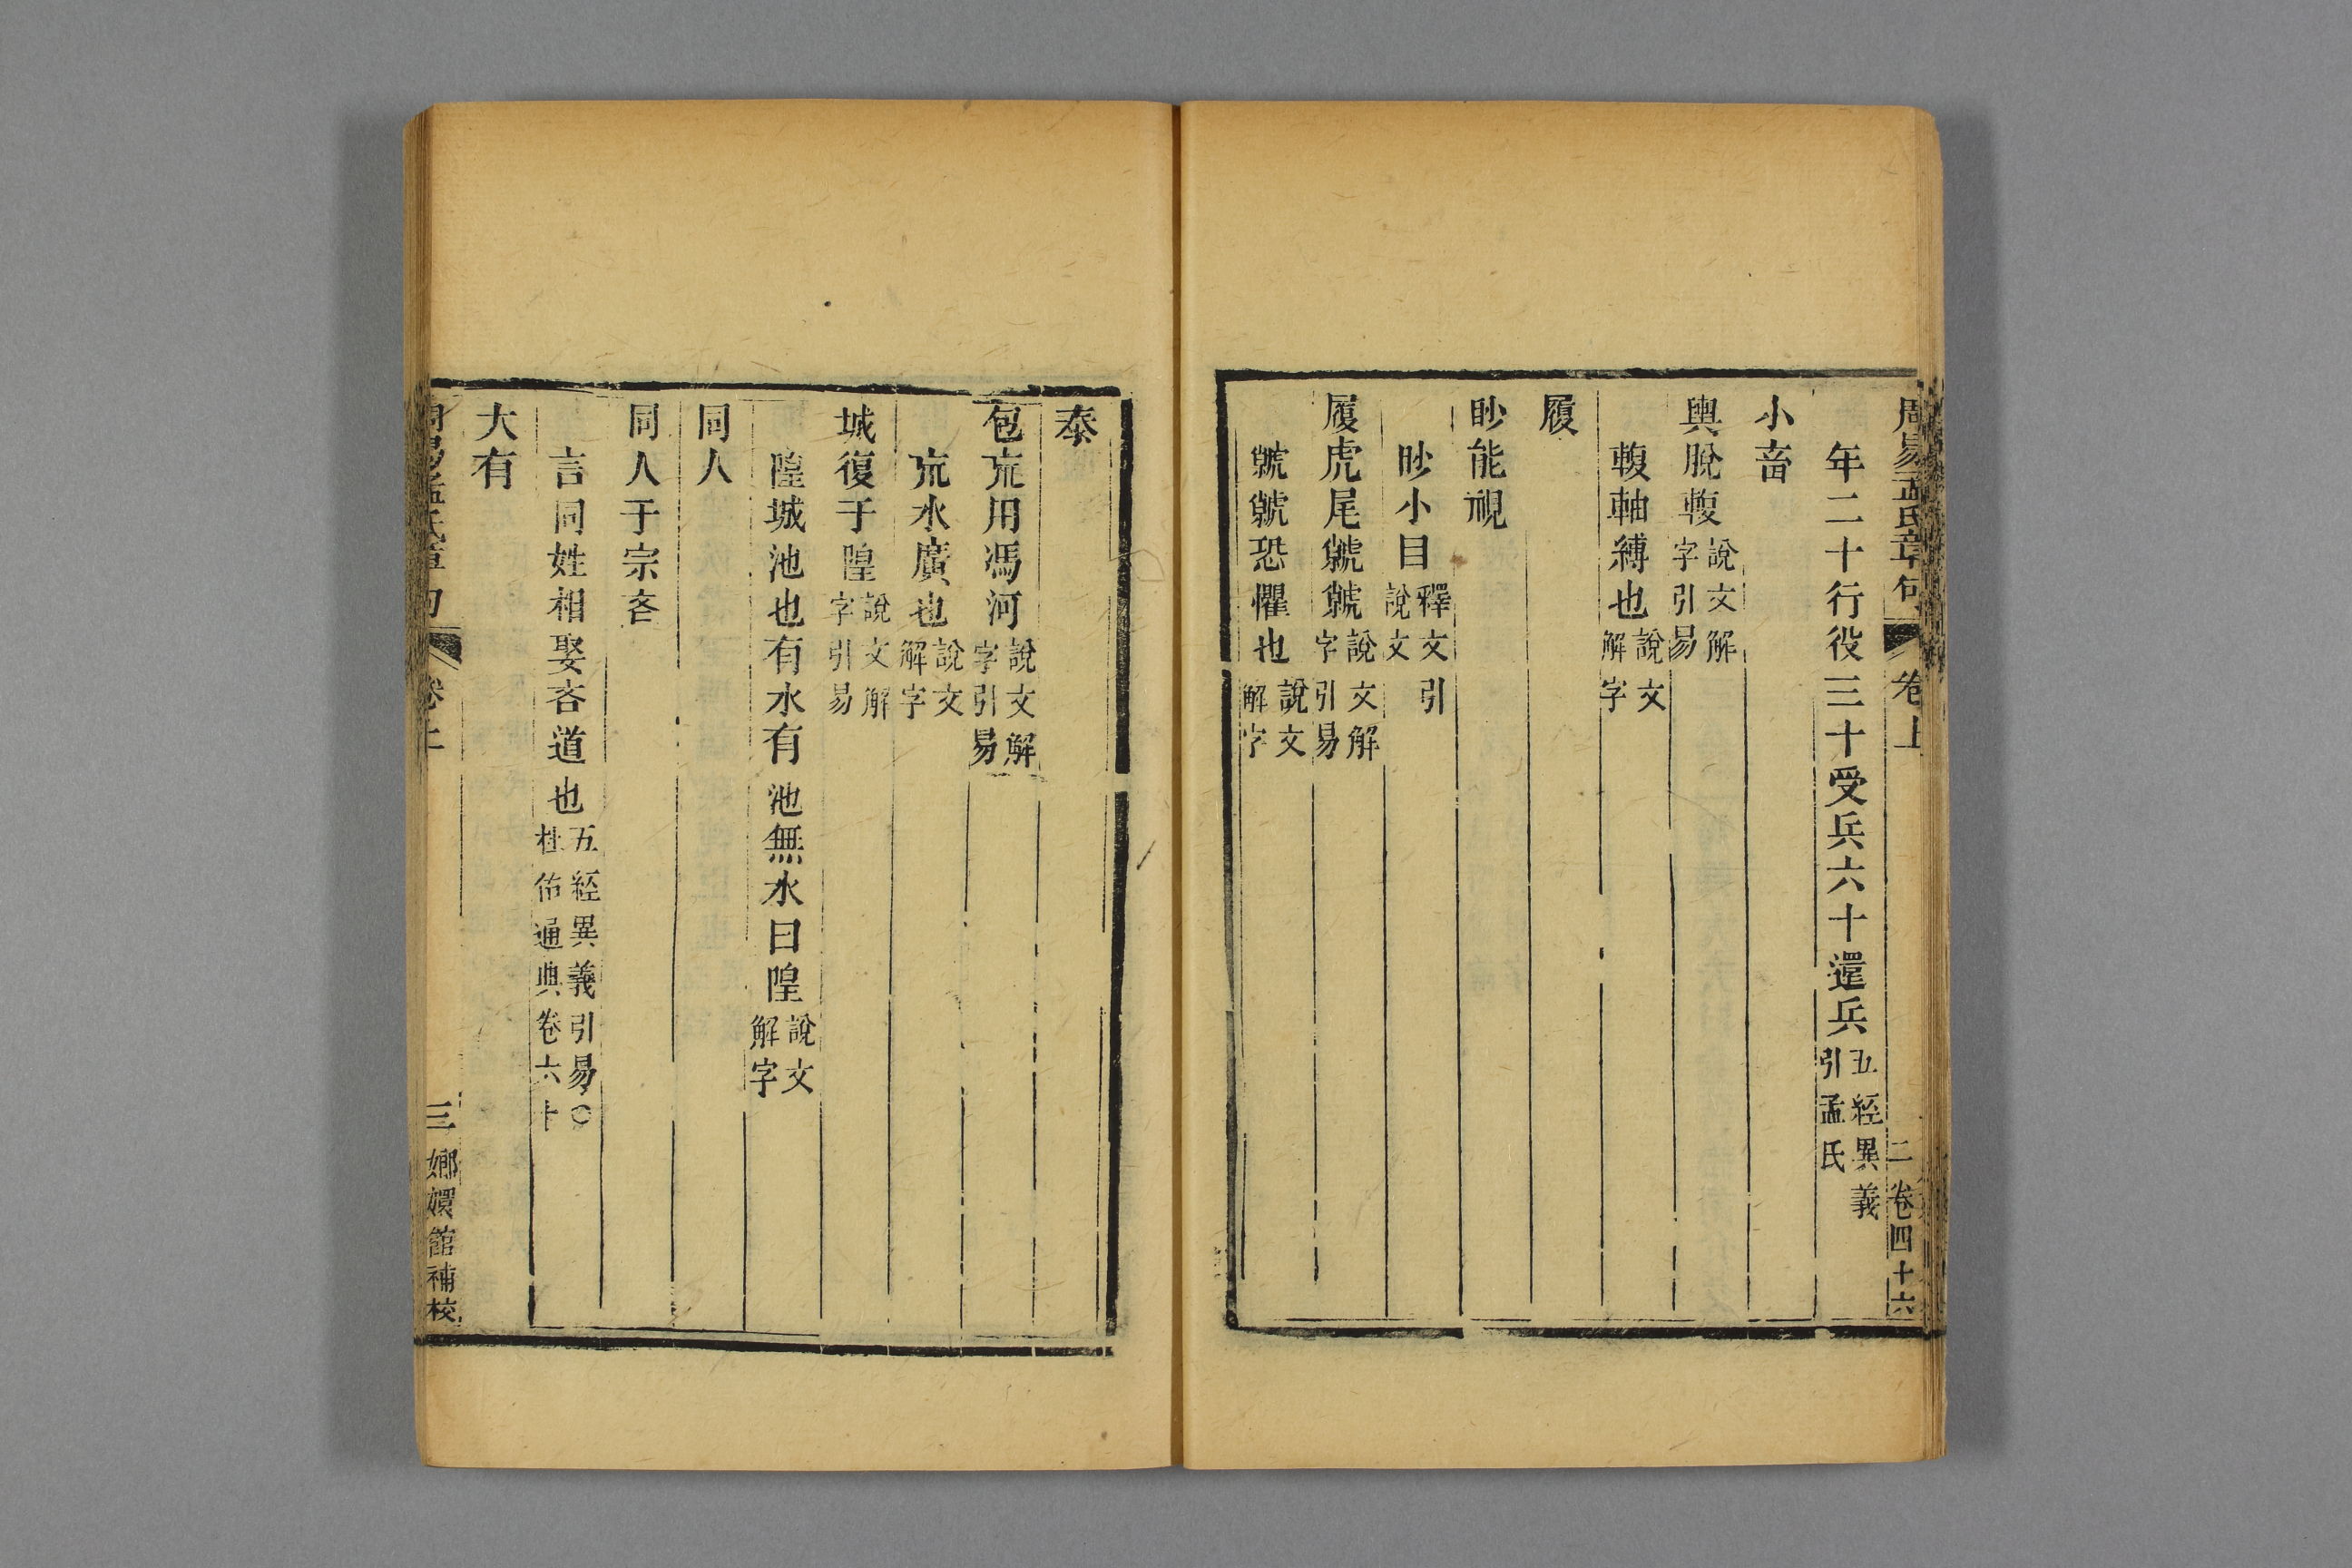 周易孟氏章句 卷上 二 卷四十六
年二十行役三十受兵六十還兵五經異義引孟氏
小畜
輿脫輹說文解字引易
輹軸縛也說文解字
履
眇能視
眇小目釋文引說文
履虎尾虩虩說文解字引易
虩虩恐懼也說文解字
泰
包巟用馮河說文解字引易
巟水廣也說文解字
城復于隍說文解字引易
隍城池也有水有池無水曰隍說文解字
同人
同人于宗吝
言同姓相娶吝道也五經異義引易〇杜佑通典卷六十
大有
周易孟氏章句 卷上 三 嫏嬛館補校